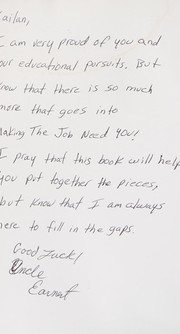 ailan,
I am very proud of you and
our educational pursuits. But
now that there is so much
more that goes into
Making The Job Need YOU!
I pray that this book will help
you put together the pieces,
but know that I am always
here to fill in the gaps.
Good Luck!
Uncle
Earnest